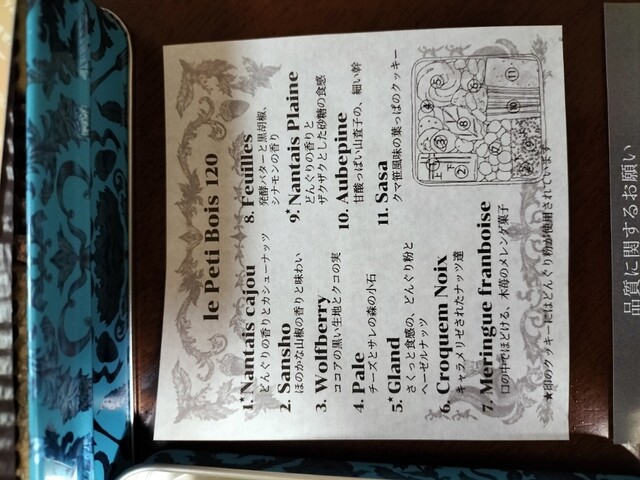 le Peti Bois 120
1.★Nantais cajou
どんぐりの香りとカシューナッツ
2. Sansho
ほのかな山椒の香りと味わい
3. Wolfberry
ココアの黒い生地とクコの実
4. Pale
チーズとサレの森の小石
5.★Gland
さくっと食感の、どんぐり粉と
ヘーゼルナッツ
6. Croquem Noix
キャラメリゼされたナッツ達
7. Meringue franboise
口の中でほどける、木苺のメレンゲ菓子
8. Feuilles
発酵バターと黒胡椒、
シナモンの香り
9.★Nantais Plaine
どんぐりの香りと
ザクザクとした砂糖の食感
10. Aubepine
甘酸っぱい山査子の、細い幹
11. Sasa
クマ笹風味の葉っぱのクッキー
★印のクッキーにはどんぐり粉が使用されています
④
⑤
⑥
⑪
③
⑧
⑩
上
①
下
②
⑦
⑨
品質に関するお願い